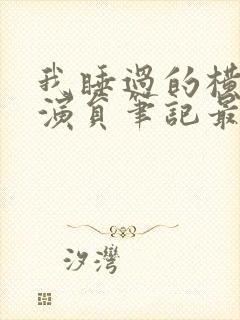 我睡過的橫
演員筆記最
汐灣